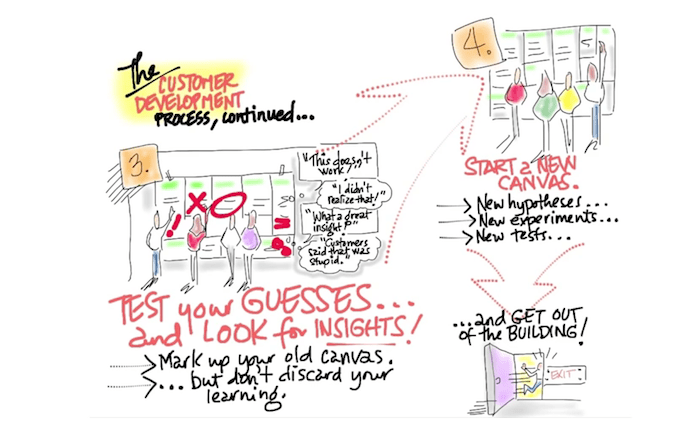 The
CUSTOMER
DEVELOPMENT
PROCESS, continued...
3.
"This doesn't
work!"
"I didn't
realize that!"
"What a great
insight!"
"Customers
said that was
stupid."
TEST your GUESSES...
and LOOK for INSIGHTS!
Mark up your old canvas.
... but don't discard your
learning.
4.
START a NEW
CANVAS.
New hypotheses...
New experiments...
New tests...
...and GET OUT
of the BUILDING!
EXIT